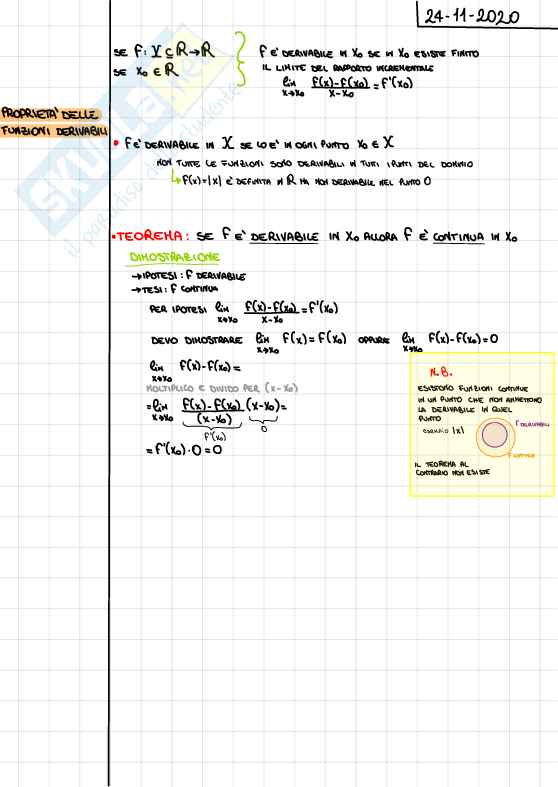 24-11-2020
SE f: X ⊆ R → R
SE x₀ ∈ R
f E' DERIVABILE IN x₀ SE IN x₀ ESISTE FINITO
IL LIMITE DEL RAPPORTO INCREMENTALE
lim x→x₀ f(x)-f(x₀) / x-x₀ = f'(x₀)
PROPRIETA' DELLE
FUNZIONI DERIVABILI
• f E' DERIVABILE IN X SE LO E' IN OGNI PUNTO x₀ ∈ X
NON TUTTE LE FUNZIONI SONO DERIVABILI IN TUTTI I PUNTI DEL DOMINIO
↳ f(x)=|x| E' DEFINITA IN R MA NON DERIVABILE NEL PUNTO 0
• TEOREMA: SE f E' DERIVABILE IN x₀ ALLORA f E' CONTINUA IN x₀
DIMOSTRAZIONE
→ IPOTESI: f DERIVABILE
→ TESI: f CONTINUA
PER IPOTESI lim x→x₀ f(x)-f(x₀) / x-x₀ = f'(x₀)
DEVO DIMOSTRARE lim x→x₀ f(x)=f(x₀) OPPURE lim x→x₀ f(x)-f(x₀)=0
lim x→x₀ f(x)-f(x₀)=
MOLTIPLICO E DIVIDO PER (x-x₀)
=lim x→x₀ f(x)-f(x₀) / (x-x₀) (x-x₀)=
f'(x₀) 0
=f'(x₀)·0=0
N.B.
ESISTONO FUNZIONI CONTINUE
IN UN PUNTO CHE NON AMMETTONO
LA DERIVABILE IN QUEL
PUNTO
ESEMPIO |x|
f DERIVABILI
f CONTINUE
IL TEOREMA AL
CONTRARIO NON ESISTE
skuola.net
il paradiso dello studente